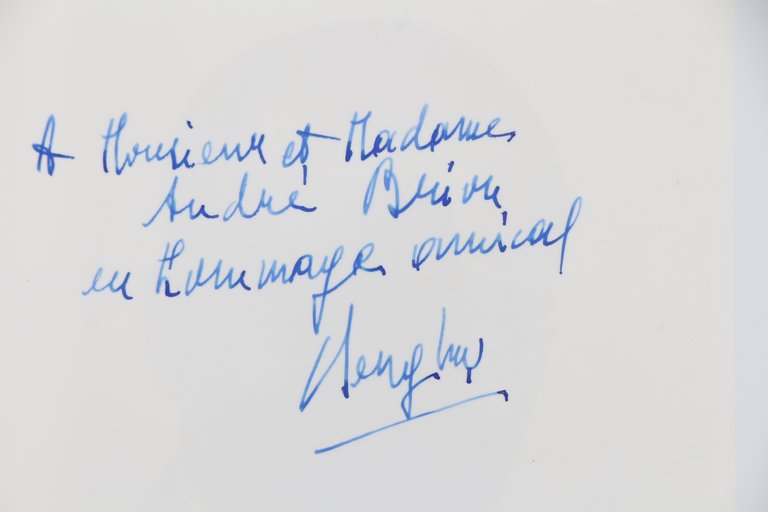 A Monsieur et Madame
André Brion
en hommage amical